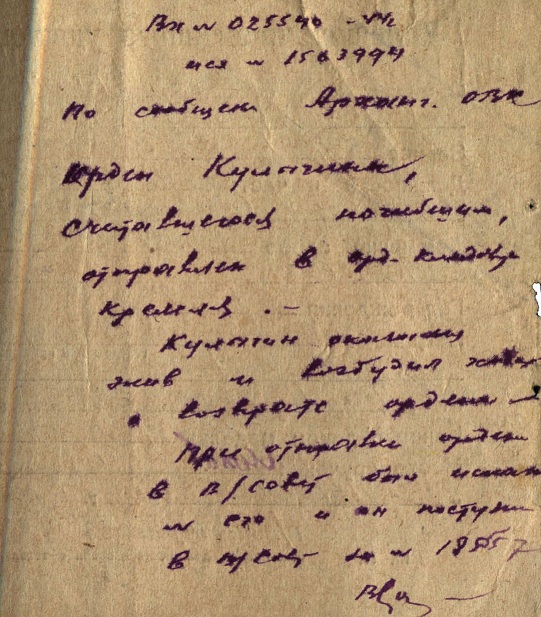 Вх № 025540
исх № 1563994
По сообщен. Арханг. ОВК
Орден Кулыгина,
считавшегося погибшим,
отправлен в орд. кладовую
Кремля . –
Кулыгин оказался
жив и возбудил
о возврате ордена –
При отправке ордена
в В/совет был
№ его и он поступил
в В/совет за № 18557